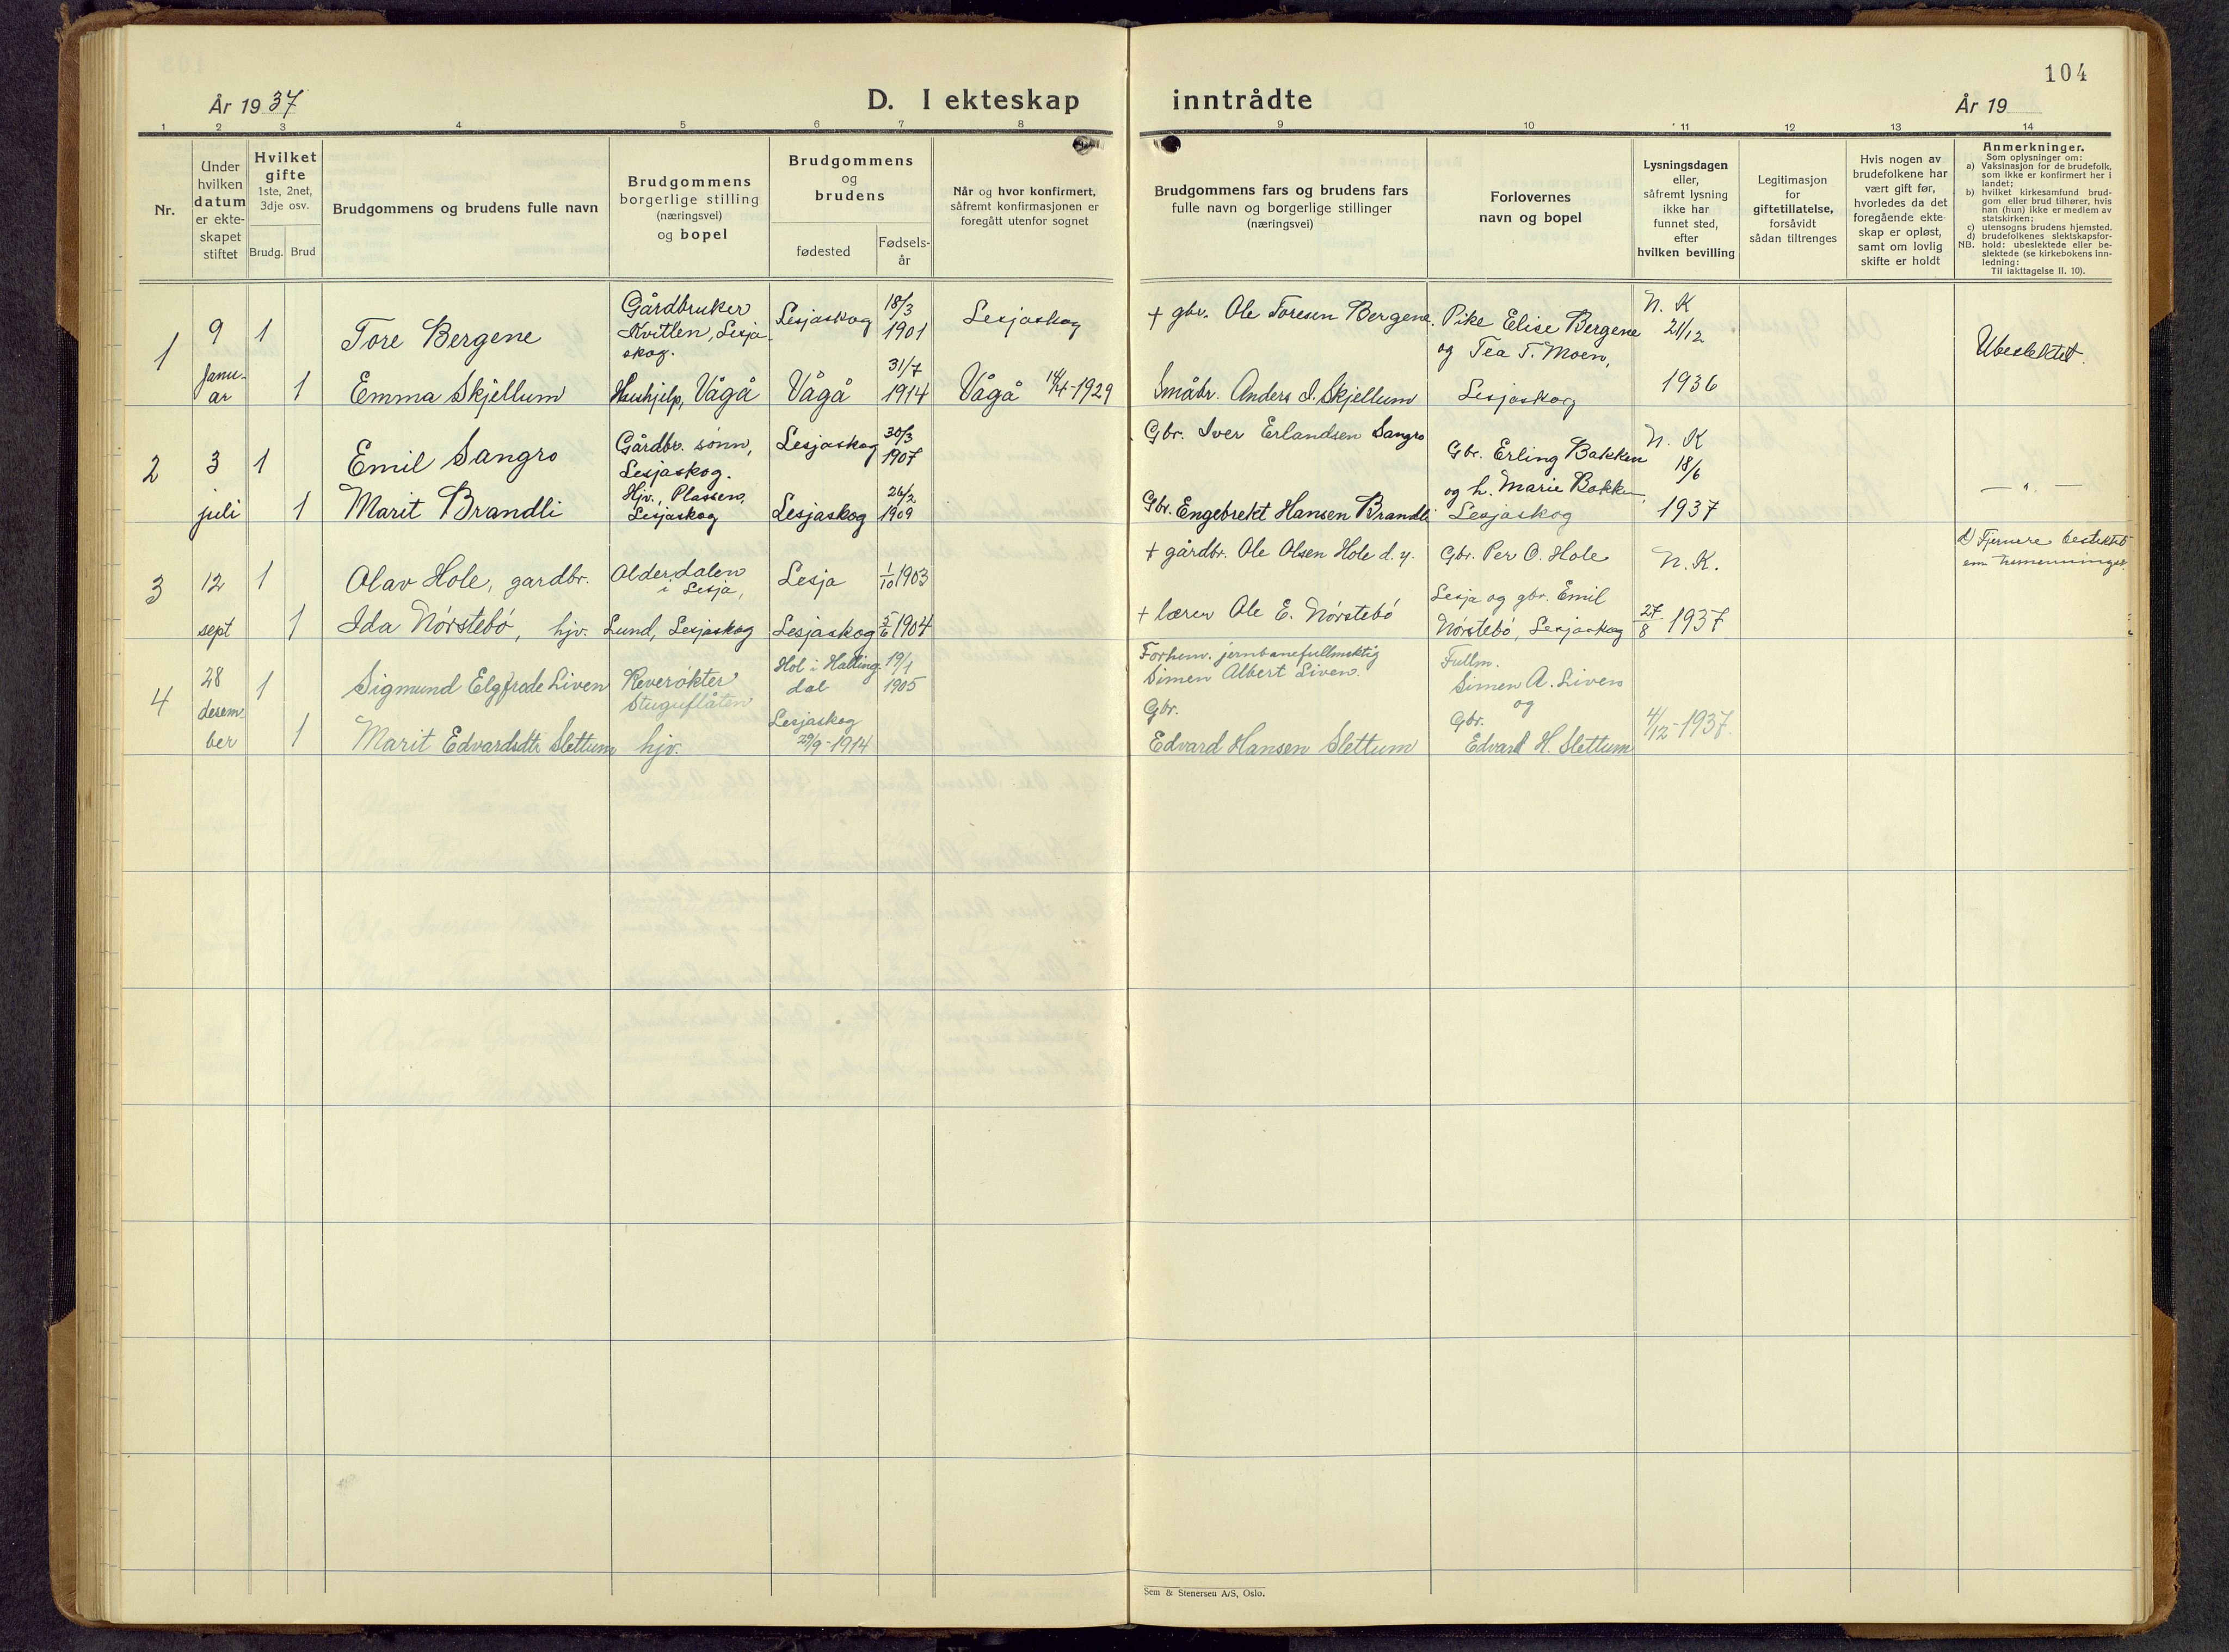 104
År 1937
D. I ekteskap inntrådte
År 19
1 2 3 4 5 6 7 8 9 10 11 12 13 14
Nr.
Under
hvilken
datum
er ekte-
skapet
stiftet
Hvilket
gifte
1ste, 2net,
3dje osv.
Brudg. Brud
Brudgommens og brudens fulle navn
Brudgommens
borgerlige stilling
(næringsvei)
og bopel
Brudgommens
og
brudens
fødested
Fødsels-
år
Når og hvor konfirmert,
såfremt konfirmasjonen er
foregått utenfor sognet
Brudgommens fars og brudens fars
fulle navn og borgerlige stillinger
(næringsvei)
Forlovernes
navn og bopel
Lysningsdagen
eller,
såfremt lysning
ikke har
funnet sted,
efter
hvilken bevilling
Legitimasjon
for
giftetillatelse,
forsåvidt
sådan tiltrenges
Hvis nogen av
brudefolkene har
vært gift før,
hvorledes da det
foregående ekte-
skap er opløst,
samt om lovlig
skifte er holdt
Anmerkninger.
Som oplysninger om:
a) Vaksinasjon for de brudefolk,
som ikke er konfirmert her i
landet;
b) hvilket kirkesamfund brud-
gom eller brud tilhører, hvis
han (hun) ikke er medlem av
statskirken;
c) utensogns brudens hjemsted.
d) brudefolkenes slektskapsfor-
NB. hold: ubeslektede eller be-
slektede (se kirkebokens inn-
ledning:
Til iakttagelse II. 10).
1
9
janu-
ar
1
Tore Bergene
Gårdbruker
Kvitlen, Lesja-
skog.
Lesjaskog
18/3
1901
Lesjaskog
+ gbr. Ole Toresen Bergene.
Pike Elise Bergene
og Tea T. Moen,
Lesjaskog
N. K
21/12
1936
Ubeslektet.
1
Emma Skjellum
Hushjelp, Vågå
Vågå
31/7
1914
Vågå 14/4-1929
Småbr. Anders I. Skjellum
2
3
juli
1
Emil Sangro
Gårdbr. sønn,
Lesjaskog.
Lesjaskog
30/3
1907
Gbr. Iver Erlandsen Sangro
Gbr. Erling Bakken
og h. Marie Bakken,
Lesjaskog
N. K
18/6
1937
— " —
1
Marit Brandli
Hjv., Plassen,
Lesjaskog
Lesjaskog
26/2
1909
Gbr. Engebrekt Hansen Brandli
3
12
sept
1
Olav Hole, gardbr.
Alderdalen
i Lesja,
Lesja
1/10 1903
+ gårdbr. Ole Olsen Hole d. y.
Gbr. Per O. Hole
Lesja og gbr. Emil
Nørstebø, Lesjaskog
N. K.
27/8 1937
d) Fjernere beslektet
enn tremenninger.
1
Ida Nørstebø, hjv.
Lund, Lesjaskog
Lesjaskog
5/6 1904
+ lærer Ole E. Nørstebø
4
28
desem-
ber
1
Sigmund Elgfrode Liven
Reverøkter
Stuguflåten
Hol i Halling-
dal
19/1
1905
Forhenv. jernbanefullmektig
Simen Albert Liven.
Fullm.
Simen A. Liven
og
Gbr.
Edvard H. Slettum
4/12-1937.
1
Marit Edvardsdtr Slettum
hjv.
Lesjaskog
29/9-1914
Gbr.
Edvard Hansen Slettum
Sem & Stenersen A/S, Oslo.